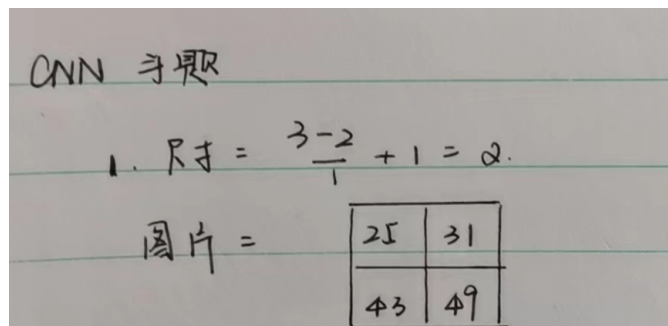 CNN 习题
1. 尺寸 = \frac{3-2}{1} + 1 = 2.
图片 =
25 31
43 49